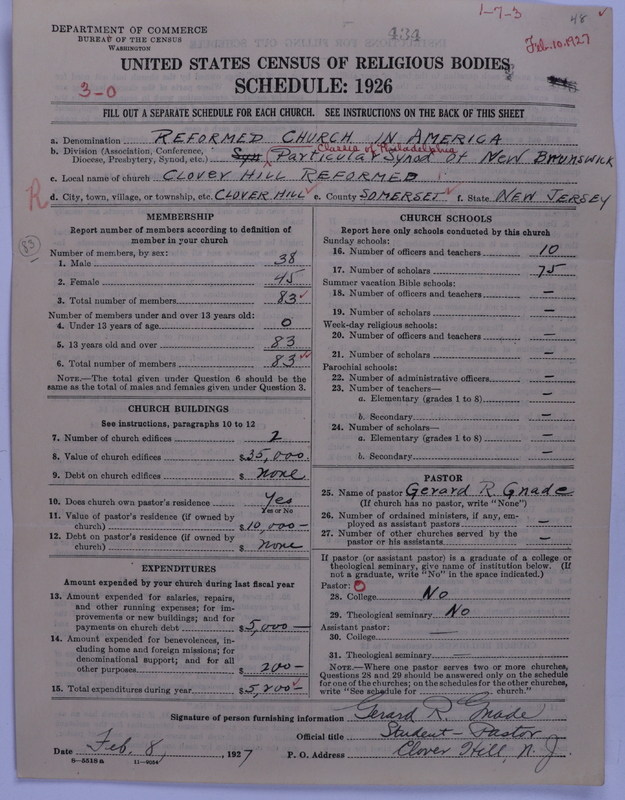 1-7-3
48
DEPARTMENT OF COMMERCE
BUREAU OF THE CENSUS
WASHINGTON
434
Feb. 10. 1927
UNITED STATES CENSUS OF RELIGIOUS BODIES
3-0
SCHEDULE: 1926
FILL OUT A SEPARATE SCHEDULE FOR EACH CHURCH. SEE INSTRUCTIONS ON THE BACK OF THIS SHEET
a. Denomination REFORMED CHURCH IN AMERICA
Classis of Philadelphia
b. Division (Association, Conference, Diocese, Presbytery, Synod, etc.) Particular Synod of NEW BRUNSWICK
c. Local name of church CLOVER HILL REFORMED
R
d. City, town, village, or township, etc. CLOVER HILL e. County SOMERSET f. State NEW JERSEY
MEMBERSHIP
Report number of members according to definition of
member in your church
83
Number of members, by sex:
1. Male 38
2. Female 45
3. Total number of members 83
Number of members under and over 13 years old:
4. Under 13 years of age 0
5. 13 years old and over 83
6. Total number of members 83
NOTE.—The total given under Question 6 should be the
same as the total of males and females given under Question 3.
CHURCH BUILDINGS
See instructions, paragraphs 10 to 12
7. Number of church edifices 2
8. Value of church edifices $35,000
9. Debt on church edifices $ none
10. Does church own pastor's residence Yes
Yes or No
11. Value of pastor's residence (if owned by
church) $10,000—
12. Debt on pastor's residence (if owned by
church) $ none
EXPENDITURES
Amount expended by your church during last fiscal year
13. Amount expended for salaries, repairs,
and other running expenses; for im-
provements or new buildings; and for
payments on church debt $5,000—
14. Amount expended for benevolences, in-
cluding home and foreign missions; for
denominational support; and for all
other purposes $ 200—
15. Total expenditures during year $5,200—
CHURCH SCHOOLS
Report here only schools conducted by this church
Sunday schools:
16. Number of officers and teachers 10
17. Number of scholars 75
Summer vacation Bible schools:
18. Number of officers and teachers —
19. Number of scholars —
Week-day religious schools:
20. Number of officers and teachers —
21. Number of scholars —
Parochial schools:
22. Number of administrative officers —
23. Number of teachers—
a. Elementary (grades 1 to 8) —
b. Secondary —
24. Number of scholars—
a. Elementary (grades 1 to 8) —
b. Secondary —
PASTOR
25. Name of pastor Gerard R. Gnade
(If church has no pastor, write "None")
26. Number of ordained ministers, if any, em-
ployed as assistant pastors —
27. Number of other churches served by the
pastor or his assistants —
If pastor (or assistant pastor) is a graduate of a college or
theological seminary, give name of institution below. (If
not a graduate, write "No" in the space indicated.)
Pastor: 0
28. College No
29. Theological seminary No
Assistant pastor:
30. College —
31. Theological seminary —
NOTE.—Where one pastor serves two or more churches,
Questions 28 and 29 should be answered only on the schedule
for one of the churches; on the schedules for the other churches,
write "See schedule for church."
Signature of person furnishing information Gerard R. Gnade
Official title Student-Pastor
Date Feb. 8, 1927 P. O. Address Clover Hill, N. J.
8—5518 a 11—9054